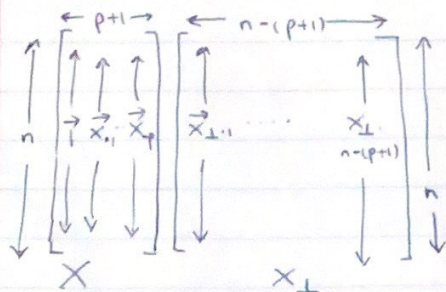 p+1 n-(p+1)
n 1 x.1 x.p x⊥.1 ..... x⊥. n
n-(p+1)
X X⊥